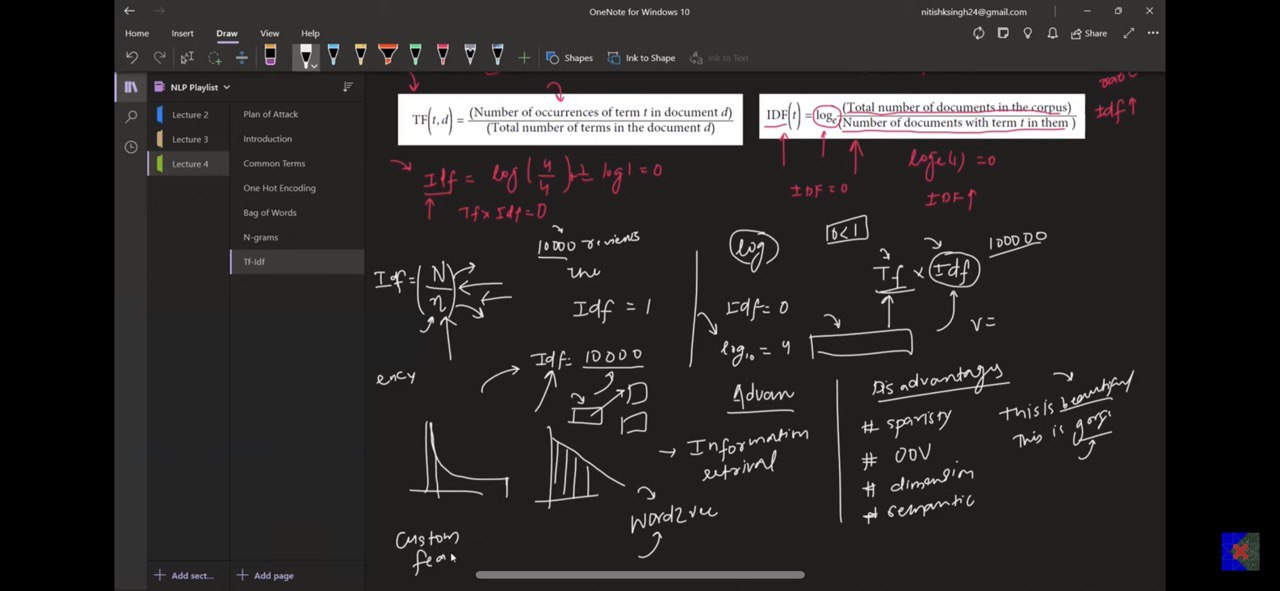 OneNote for Windows 10
nitishksingh24@gmail.com
Home Insert Draw View Help
Shapes Ink to Shape Ink to Text
Share
NLP Playlist
Lecture 2
Lecture 3
Lecture 4
Plan of Attack
Introduction
Common Terms
One Hot Encoding
Bag of Words
N-grams
Tf-Idf
Add sect...
Add page
TF(t, d) = (Number of occurrences of term t in document d)
(Total number of terms in the document d)
IDF(t) = logₑ (Total number of documents in the corpus)
(Number of documents with term t in them)
Idf ↑
Idf = log(4/4) = log 1 = 0
Tf x Idf = 0
IDF = 0
loge(1) = 0
IDF ↑
Idf = (N/n)
10000 reviews
the
Idf = 1
Idf = 10000
log
Idf = 0
log₁₀ = 4
0<1
Tf x Idf
100000
v =
Advan
→ Information
retrival
word2vec
Custom
fea
Disadvantages
# sparisty
# OOV
# dimension
# semantic
This is beautiful
This is gorge